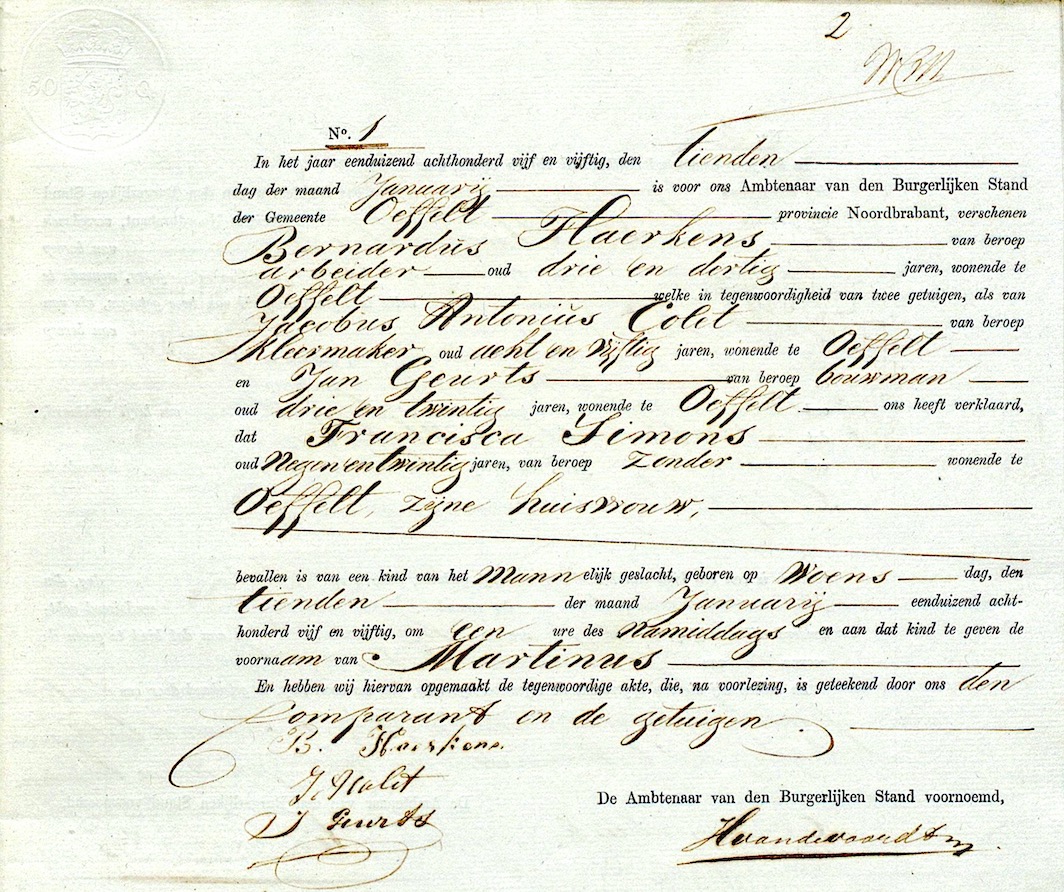 2
No. 1
In het jaar eenduizend achthonderd vijf en vijftig, den tienden
dag der maand Januarij is voor ons Ambtenaar van den Burgerlijken Stand
der Gemeente Oeffelt provincie Noordbrabant, verschenen
Bernardus Haerkens van beroep
arbeider oud drie en dertig jaren, wonende te
Oeffelt welke in tegenwoordigheid van twee getuigen, als van
Jacobus Antonius Colet van beroep
kleermaker oud acht en vijftig jaren, wonende te Oeffelt
en Jan Geurts van beroep bouwman
oud drie en twintig jaren, wonende te Oeffelt ons heeft verklaard,
dat Francisca Simons
oud Negen en twintig jaren, van beroep Zonder wonende te
Oeffelt, zijne huisvrouw,
bevallen is van een kind van het Mannelijk geslacht, geboren op Woensdag, den
tienden der maand Januarij eenduizend acht-
honderd vijf en vijftig, om een ure des namiddags en aan dat kind te geven de
voornaam van Martinus
En hebben wij hiervan opgemaakt de tegenwoordige akte, die, na voorlezing, is geteekend door ons den
Comparant en de getuigen
B. Haerkens
J. Geurts
De Ambtenaar van den Burgerlijken Stand voornoemd,